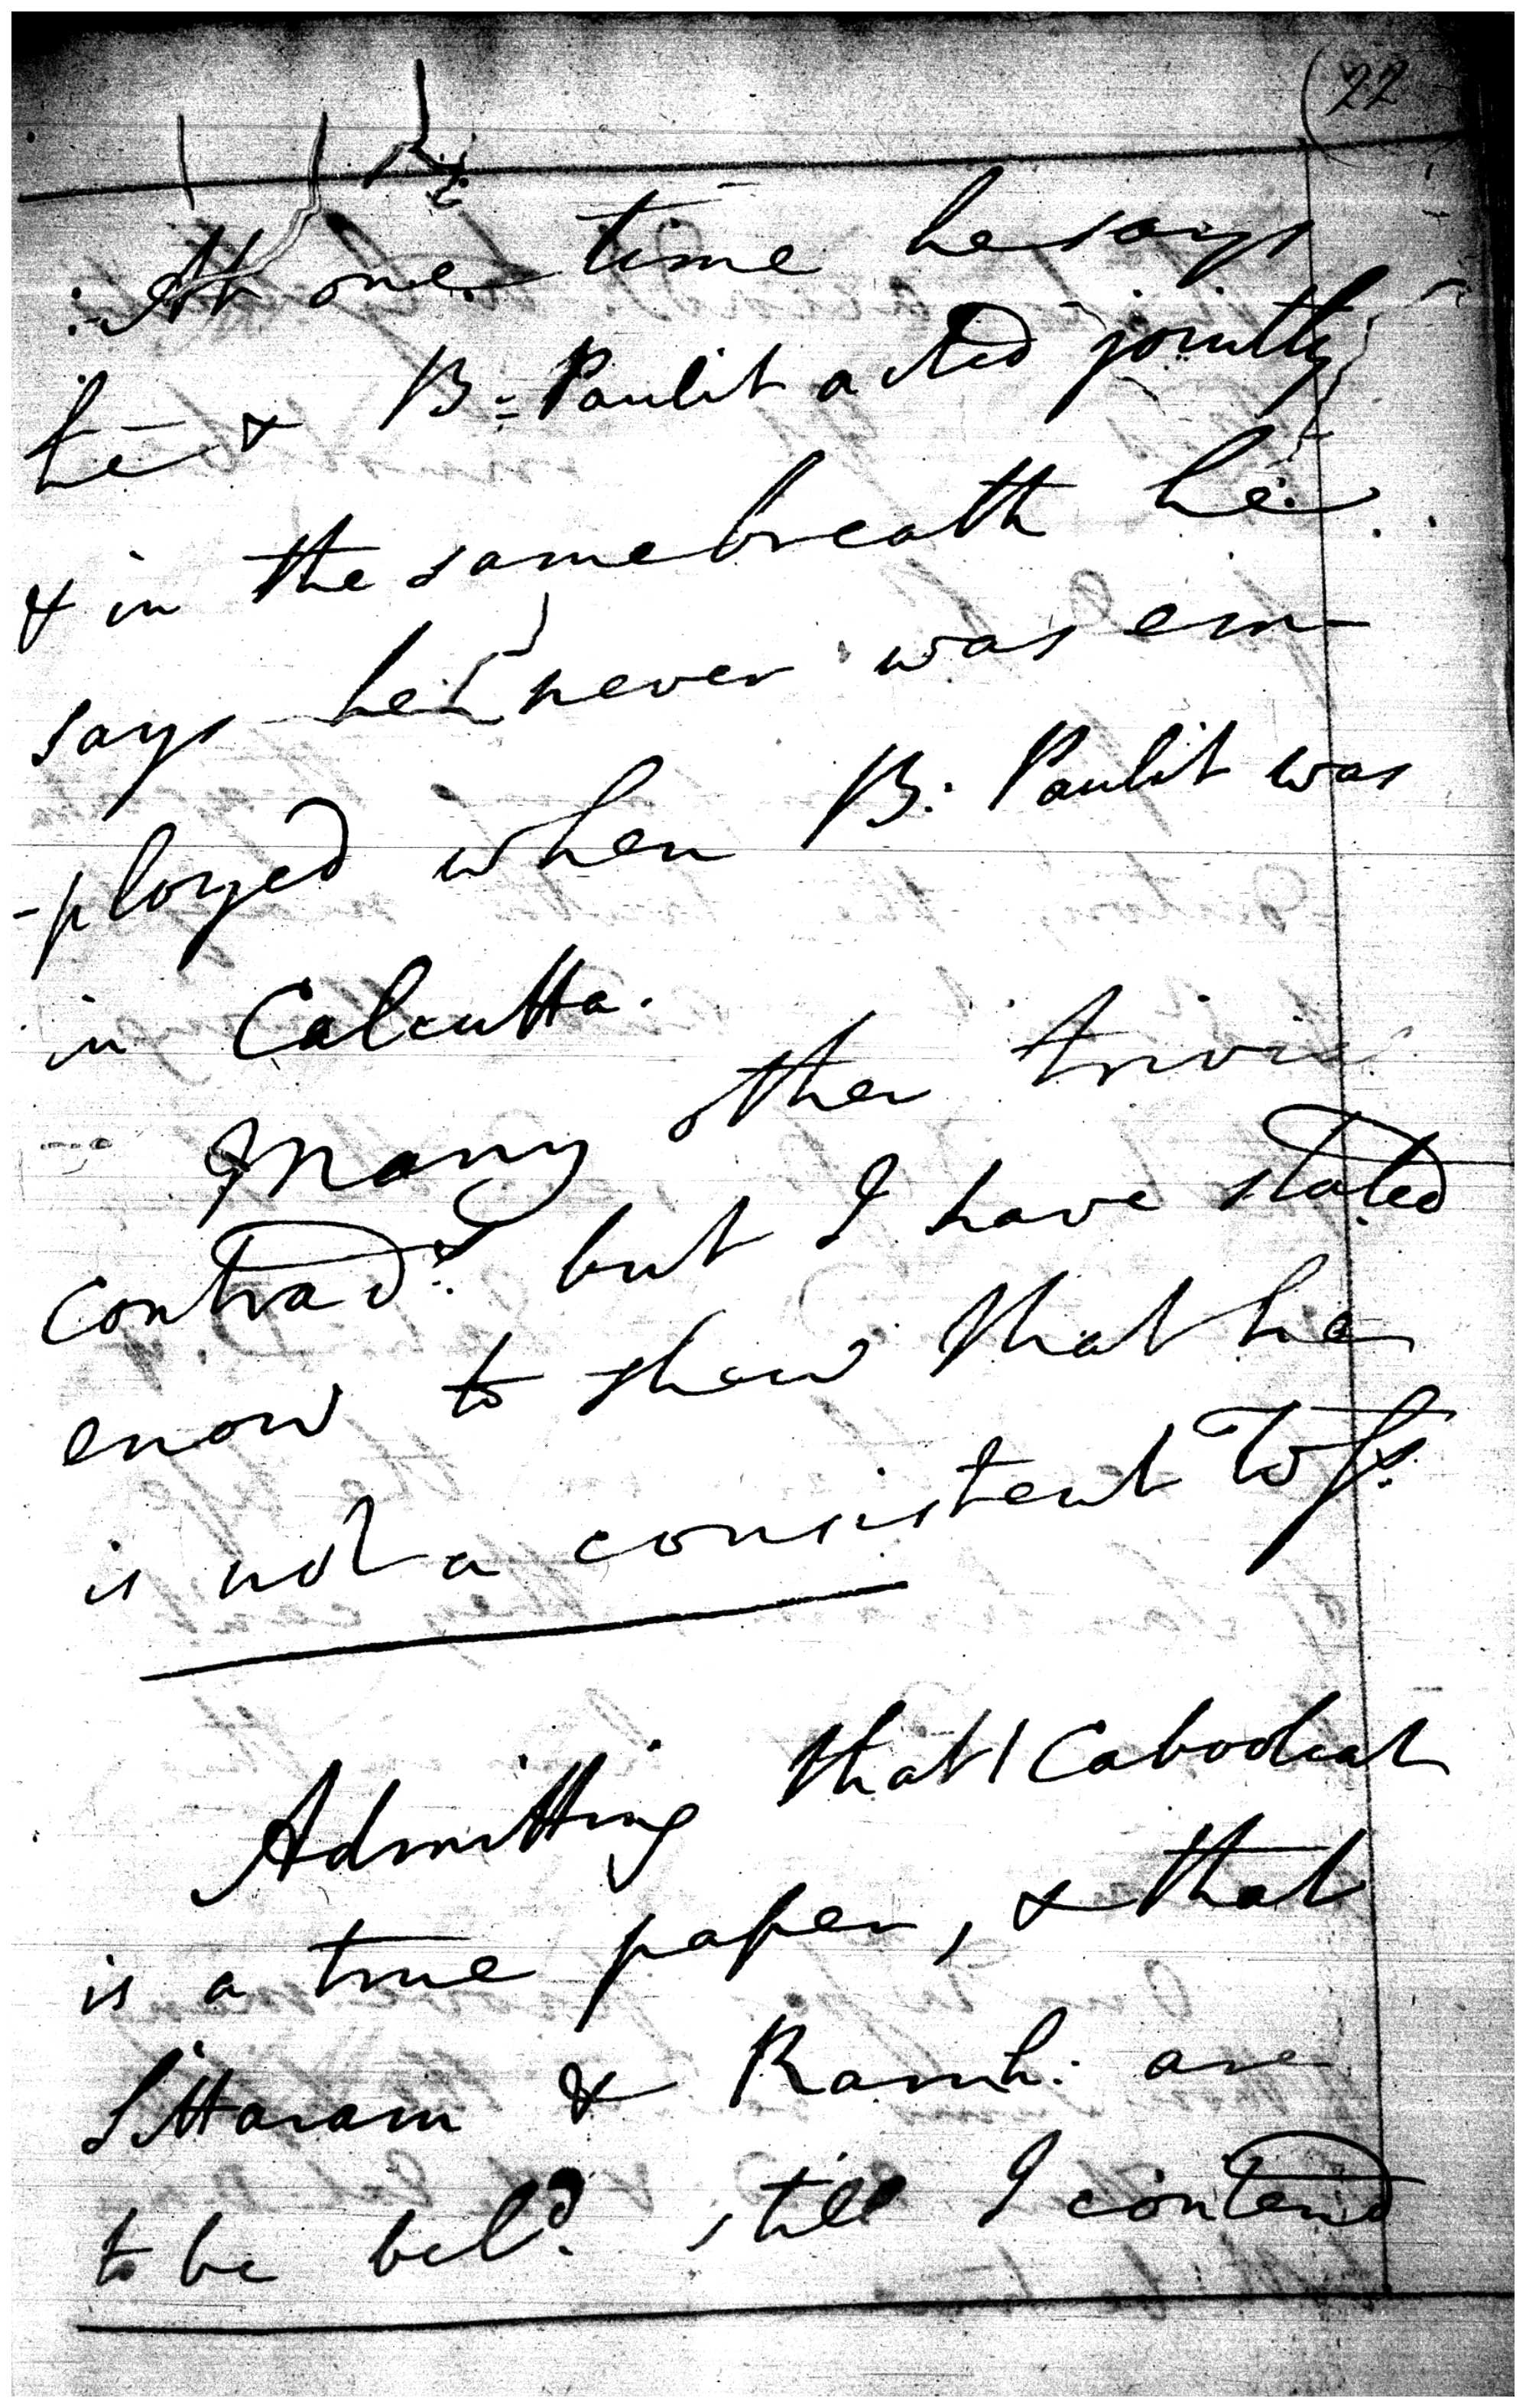 22
At one time he says
he & B: Paulit acted jointly
& in the same breath he
says he never was em-
-ployed when B: Paulit was
in Calcutta.
Many other trivial
contrad.s but I have stated
enow to shew that he
is not a consistent Wfs.
Admitting that Cabooleat
is a true paper, & that
Sittaram & Ramh: are
to be bel.d still I contend